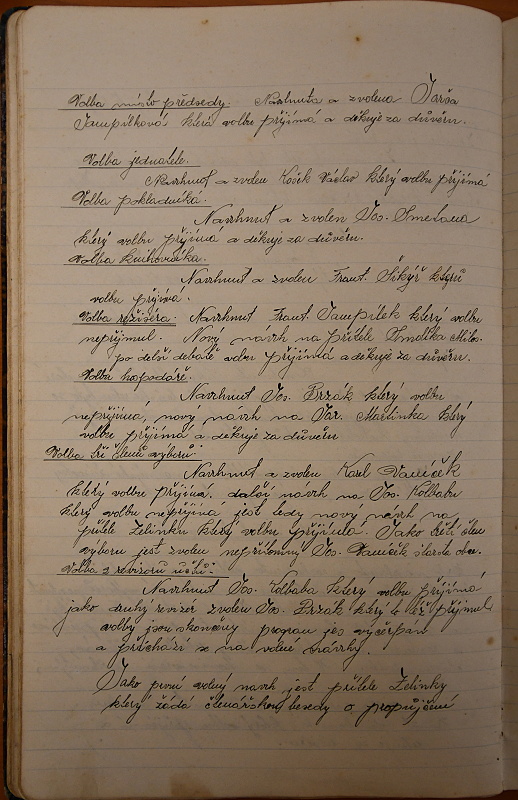 Volba místo předsedy. Navrhnuta a zvolena Jarča
Jampílková která volbu přijímá a děkuje za důvěru.
Volba jednatele.
Navrhnut a zvolen Kočík Václav který volbu přijímá
Volba pokladníka.
Navrhnut a zvolen Jos. Smetana
který volbu přijímá a děkuje za důvěru.
Volba knihovníka.
Navrhnut a zvolen Frant. Šikýř který
volbu přijímá.
Volba režiséra. Navrhnut Frant. Jampílek který volbu
nepřijmul. Nový návrh na přítele Smolíka Milos.
po delší debatě volbu přijímá a děkuje za důvěru.
Volba hospodáře.
Navrhnut Jos. Brzák který volbu
nepřijímá, nový návrh na Jar. Martinka který
volbu přijímá a děkuje za důvěru
Volba tří členů výboru:
Navrhnut a zvolen Karel Vaníček
který volbu přijímá. další návrh na Jos. Kolbabu
který volbu nepřijímá jest tedy nový návrh na
přítele Zelinku který volbu přijímá. Jako třetí člen
výboru jest zvolen nepřítomný Jos. Vaníček starosta obce.
Volba 2 revizorů účtů:
Navrhnut Jos. Kolbaba který volbu přijímá
jako druhý revizor zvolen Jos. Brzák který též přijmul
volby jsou skončeny program jes vyčerpán
a přichází se na volné návrhy.
Jako první volný návrh jest přítele Zelinky
který žádá čtenářskou besedu o propůjčení